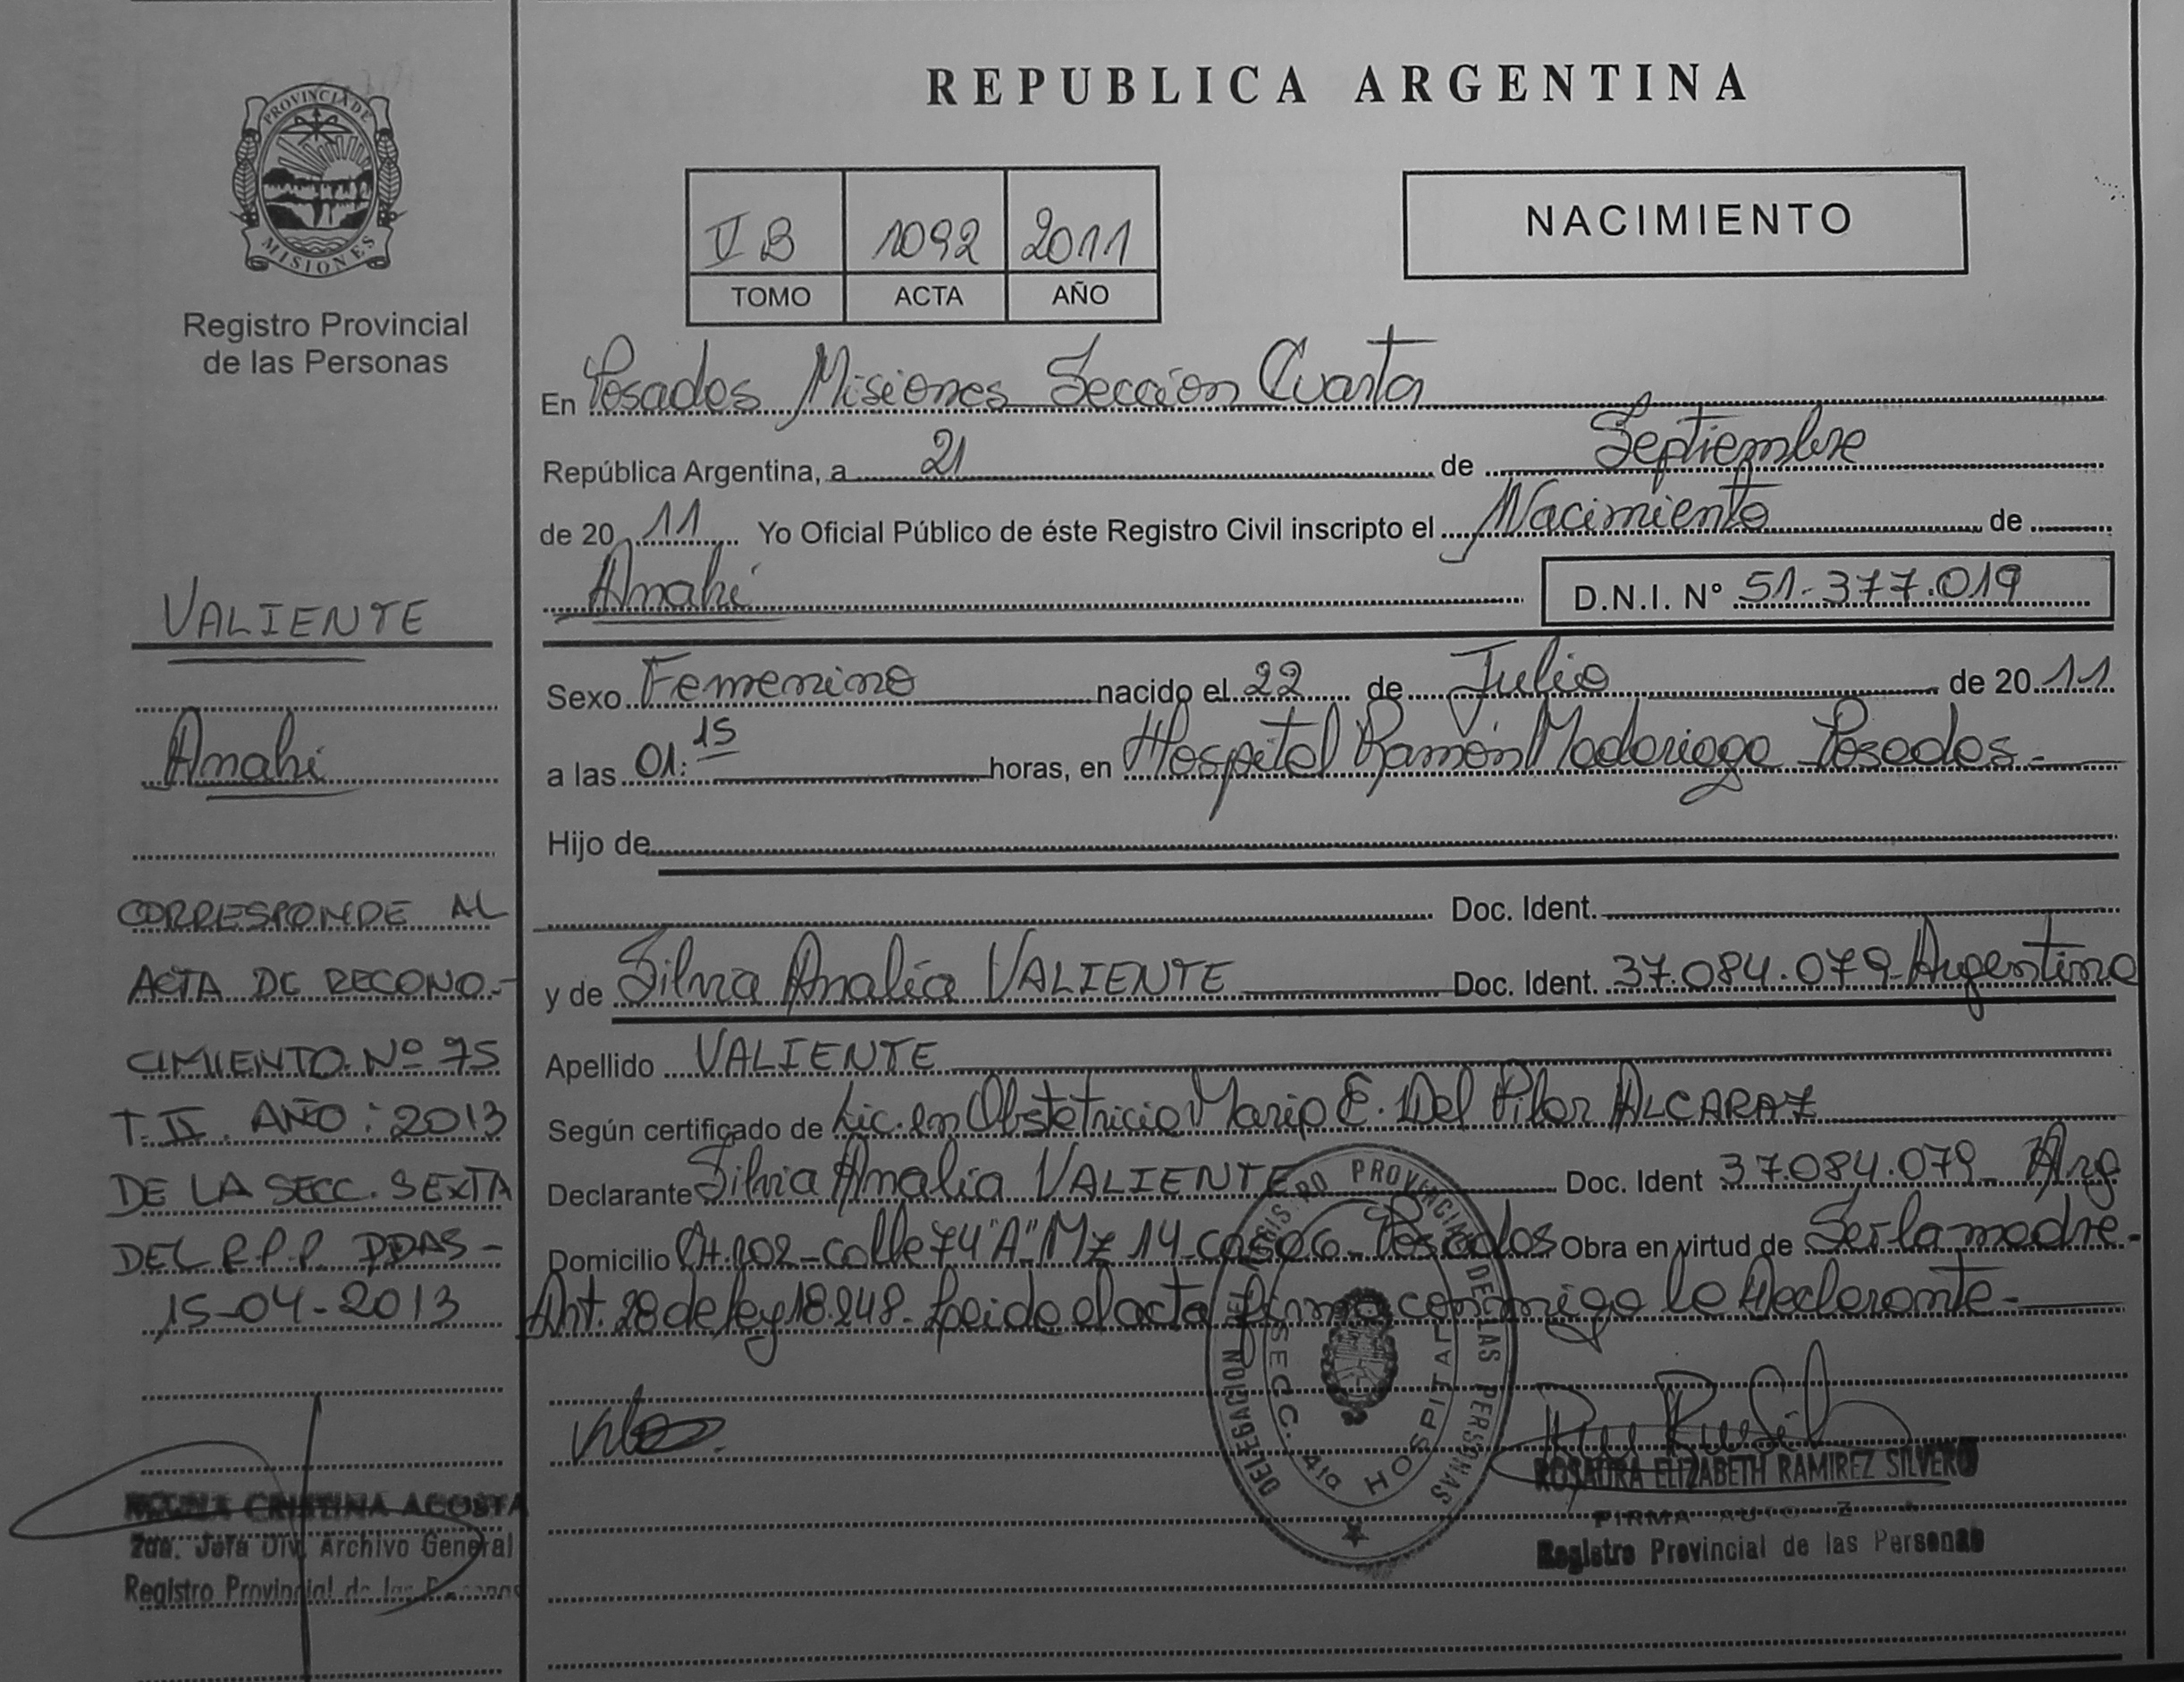 PROVINCIA DE
MISIONES
Registro Provincial
de las Personas
VALIENTE
Anahi
CORRESPONDE AL
ACTA DE RECONO-
CIMIENTO Nº 75
T. II. AÑO: 2013
DE LA SECC. SEXTA
DEL R.P.P. PDAS-
15-04-2013
CRISTINA ACOSTA
2da. Jefa Div. Archivo General
Registro Provincial de las Personas
REPUBLICA ARGENTINA
V B 1092 2011
TOMO ACTA AÑO
NACIMIENTO
En Posadas Misiones Sección Cuarta
República Argentina, a 21 de Septiembre
de 2011 Yo Oficial Público de éste Registro Civil inscripto el Nacimiento de
Anahi D.N.I. Nº 51.377.019
Sexo Femenino nacido el 22 de Julio de 2011
a las 01:15 horas, en Hospital Ramón Madariaga Posadas-
Hijo de
Doc. Ident.
y de Silvia Amalia VALIENTE Doc. Ident. 37.084.079-Argentina
Apellido VALIENTE
Según certificado de Lic. en Obstetricia María E. Del Pilar ALCARAZ
Declarante Silvia Amalia VALIENTE Doc. Ident 37.084.079- Arg
Domicilio CH.202-calle 74"A" Mz 14-casa 6-Posadas Obra en virtud de Ser la madre-
Art. 28 de ley 18.248. Leida el acta firma conmigo la declarante-
DELEGACION DEL REGISTRO PROVINCIAL DE LAS PERSONAS
SECC. 4ta HOSPITAL
ROSAURA ELIZABETH RAMIREZ SILVERO
FIRMA
Registro Provincial de las Personas